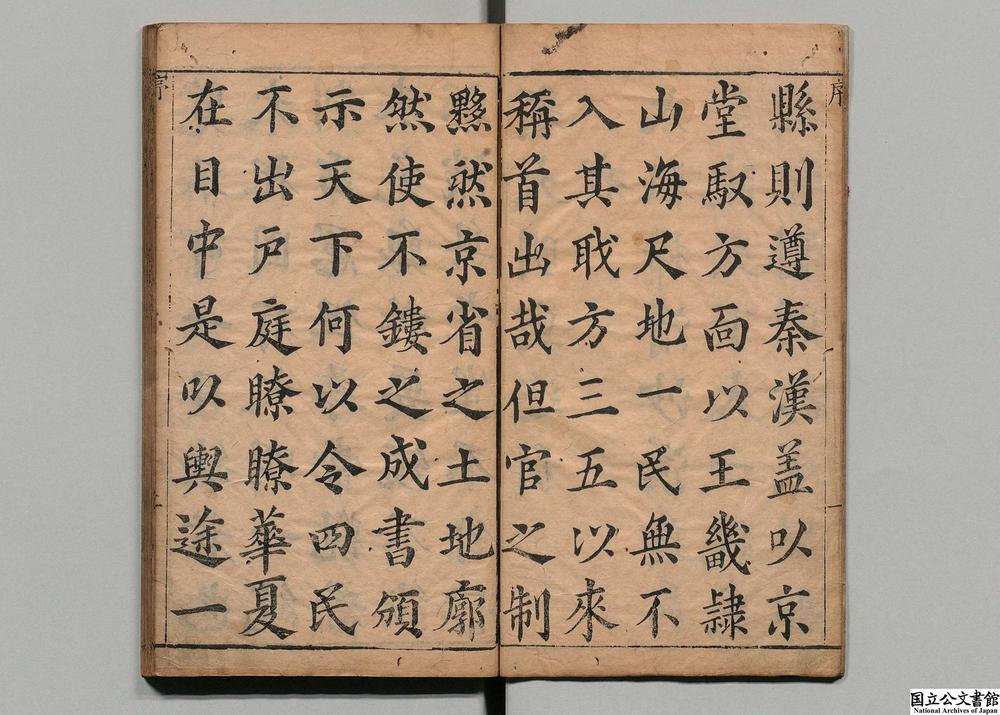 序
縣則遵秦漢盖以京
堂馭方面以王畿隷
山海尺地一民無不
入其職方三五以來
稱首出哉但官之制
黟然京省之土地廓
然使不鏤之成書頒
示天下何以令四民
不出戸庭瞭瞭華夏
在目中是以輿途一
序
国立公文書館
National Archives of Japan